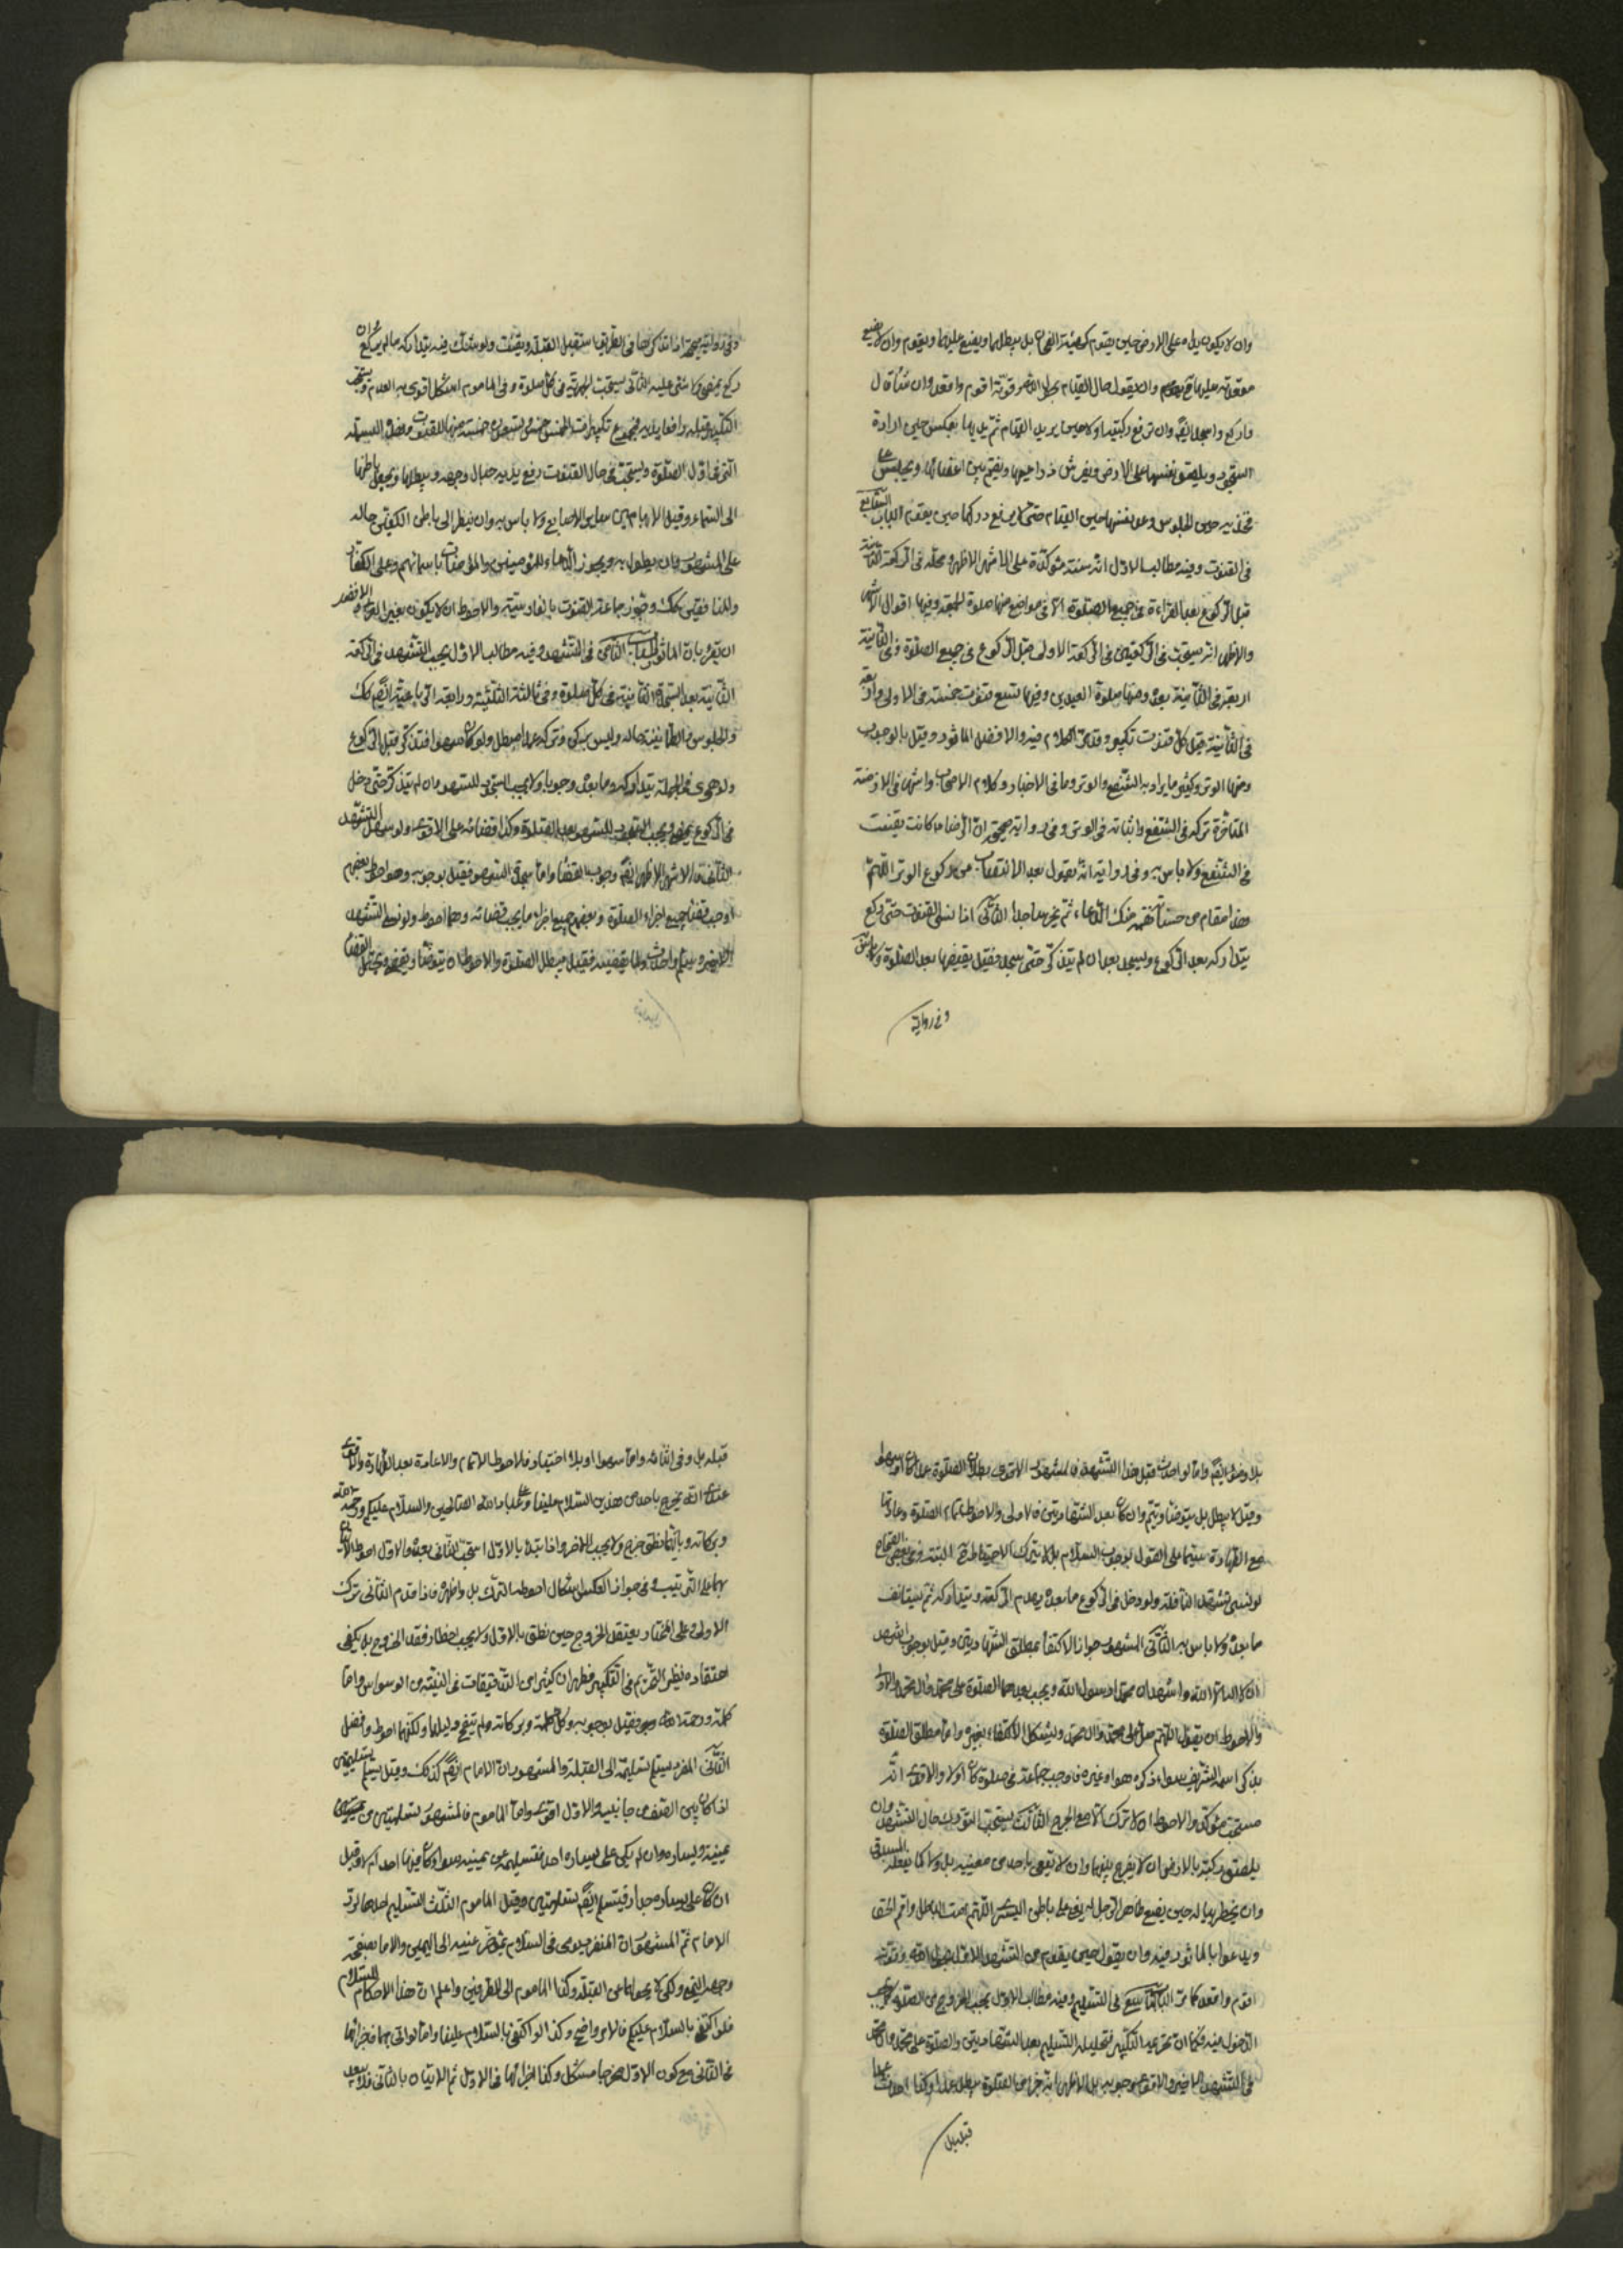 وان لا يكون يداه على الارض حين يقوم كهيئة العجان بل يبسطهما ويضع عليهما ويقوم وان لا يضع
مقعدته عليها وان يقول حال القيام بحول اللهم وقوته اقوم واقعد وان شاء قال
واركع واسجد ايضا وان ترفع ركبتيه اولا حين يريد القيام ثم يديها بعكس حين ارادة
السجود ويلصق نفسها على الارض ويفرش ذراعيها ويضم بين اعضائها ويجلس على
فخذيه حين الجلوس وعن نفسها حين القيام حتى لا يرفع حين يقوم الباب السابع
فى القنوت وفيه مطالب الاول انه سنة مؤكدة على الاشهر الاظهر ومحله فى الركعة الثانية
قبل الركوع بعد القراءة فى جميع الصلوة الا فى مواضع منها صلوة الجمعة وفيها اقوال الاشهر
والاظهر انه يستحب فى الركعتين فى الركعة الاولى قبل الركوع فى جميع الصلوة وفى الثانية
فى الثانية بعده ومنها صلوة العيدين وفيها تسع قنوت خمسة فى الاولى واربعة
فى الثانية قبل كل قنوت تكبير وقد مر الكلام فيه والافضل الماثور وقيل بالوجوب
ومنها الوتر وكثيرا ما يراد به الشفع والوتر وما فى الاخبار وكلام الاصحاب واشهر فى الازمنة
المتاخرة تركه فى الشفع واثباته فى الوتر وفى رواية صحيحة ان الرضا ع كانت يقنت
فى الشفع ولا باس به وفى رواية انه يقول بعد الانتصاب من ركوع الوتر اللهم
هذا مقام من حسناته نعمة منك الدعاء ثم يخر ساجدا الثانى اذا نسى القنوت حتى ركع
يتداركه بعد الركوع ويسجد بعد ان لم يتذكر حتى سجد فقيل يقضيها بعد الصلوة ولا باس
وفى رواية
وفى رواية صحيحة اذا تذكرها فى الطريق استقبل القبلة ويقنت ولو شك فيه يتداركه ما لم يركع وان
ركع يمضى ولا شئ عليه الثالث يستحب الجهر به فى كل صلوة وفى الماموم اشكال اقوى به العدم ويستحب
التكبير قبله رافعا يديه فمجموع تكبيرات الخمس خمس وتسعون خمسة منها للقنوت
التى فى اول الصلوة ويستحب فى حال القنوت رفع يديه حيال وجهه ويبسطها ويجعل باطنها
الى السماء وقيل الابهامين ساير الاصابع ولا باس به وان ينظر الى باطن الكفين حاله
على المشهور وان يطول به ويجوز الدعاء للمؤمنين والمؤمنات باسمائهم وعلى الكفار
والمنافقين كك وجوز جماعة القنوت بالفارسية والاحوط ان لا يكون بغير العربية والافضل
ان يقرء بالماثور الباب الثامن فى التشهد وفيه مطالب الاول يجب التشهد فى الركعة
الثانية بعد السجدة الثانية فى كل صلوة وفى ثالثة الثلثية ورابعة الرباعية ايضا كك
والجلوس والطمانينة حاله وليس بركن وتركه عمدا مبطل ولو كان سهوا فتذكر قبل الركوع
ولو هوى فى الجملة يتداركه وما بعده وجوبا ولا يجب السجود للسهو وان لم يتذكر حتى دخل
فى الركوع يمضى ويجب السجود للسهو بعد الصلوة وكذا قضائه على الاقوى ولو نسى التشهد
الثانى فالاشهر الاظهر ايضا وجوب القضاء واما سجدتى السهو فقيل بوجوبه وهو احوط بعضهم
اوجب قضاء جميع اجزاء الصلوة وبعضهم جميع اجزاء ما يجب قضائه وهما احوط ولو نسى التشهد
الاخير وسلم واحدث ولما يقضيه فقيل مبطل الصلوة والاحوط ان يتوضا ويقضى ويحتمل القضاء
بلا وضوء ايضا واما لو احدث قبل هذا التشهد فالمشهور الاقوى بطلان الصلوة عمدا كان او سهوا
وقيل لا يبطل بل يتوضا ويتم وان كان بعد الشهادتين فالاولى والاحوط اتمام الصلوة واعادتها
مع الطهارة سيما على القول بوجوب السلام بل لا يترك الاحتياط البتة وفى بعض الصحاح
لو نسى تشهد النافلة ولو دخل فى الركوع ما بعده يهدم الركعة ويتداركه ثم يستانف
ما بعده ولا باس به الثانى المشهور جواز الاكتفاء بمطلق الشهادتين وقيل بوجوب اشهد
ان لا اله الا الله واشهد ان محمدا رسول الله ويجب بعدهما الصلوة على محمد وال محمد والاولى
والاحوط ان يقول اللهم صل على محمد وال محمد ويشكل الاكتفاء بغيره واما مطلق الصلوة
بذكر اسمه الشريف سواء ذكره هو او غيره فاوجب جماعة فى صلوة كان اولا والاقوى انه
مستحب مؤكد والاحوط ان لا يترك الا مع الحرج الثالث يستحب التورك حال التشهد وان
يلصق ركبتيه بالارض ان لا يفرج بينهما وان لا يقعى باحد من معنييه بل ولا كما يفعله
وان يخطر بباله حين يضع ظاهر الرجل اليمنى على باطن اليسرى اللهم امت الباطل واقم الحق
ويدعوا بالماثور فيه وان يقول حين يقوم من التشهد الاول بحول الله وقوته
اقوم واقعد كما مر الباب التاسع فى التسليم وفيه مطالب الاول يجب الخروج من الصلوة كما يجب
الدخول فيه فكما ان تحريمه التكبير فتحليله التسليم بعد الشهادتين والصلوة على محمد وال محمد
فى التشهد الاخير والاقوى وجوبه بل الاظهر انه جزء من الصلوة يبطل عمدا وكذا احدث عمدا
قبله بل
قبله بل وفى اثنائه واما سهوا او بلا اختيار فالاحوط الاتمام والاعادة بعد الطهارة والاقوى
عندى انه يخرج باحد من هذين السلام علينا وعلى عباد الله الصالحين والسلام عليكم ورحمة الله
وبركاته وبايهما نطق خرج ولا يجب الاخر واذا ابتدا بالاول استحب الثانى بعده والاول احوط الاتيان
بهما على الترتيب وفى جواز العكس اشكال احوطه الترك بل واظهره فاذا قدم الثانى ترك
الاولى وعلى المختار يعتقد الخروج حين نطق بالاول ولا يجب اخطار قصد الخروج بل يكفى
اعتقاده نظير التحريم فى التكبير فظهر ان كثيرا من التدقيقات فى النية من الوسواس واما
كلمة ورحمة الله وبركاته فقيل بوجوبه وكل كلمة وبركاته ولم يتضح دليلهما ولكنهما احوط وافضل
الثانى المنفرد يسلم تسليمة الى القبلة والمشهور ان الامام ايضا كذلك وقيل يسلم تسليمتين
اذا كان بين الصف من جانبيه والاول اقوى واما الماموم فالمشهور تسليمتين من
يمينه ويساره وان لم يكن على يساره احد فتسليمة من يمينه سواء كان فيها احد ام لا وقيل
ان كان على يساره جدار فيسلم ايضا تسليمتين وقيل الماموم الثلث التسليم احدها لرد
الامام ثم المشهور ان المنفرد يومى فى السلام بمؤخر عينيه الى اليمين والامام بصفحة
وجهه اليمنى ولكن لا يحولها عن القبلة وكذا الماموم الى الطرفين واعلم ان هذا الاحكام للسلام
فلو اكتفى بالسلام عليكم فالامر واضح وكذا لو اكتفى بالسلام علينا واما لو اتى بهما فاجرائها
فى الثانى مع كون الاول مخرجا مشكل وكذا اجرائها فى الاول ثم الاتيان بالثانى فلا يبعد